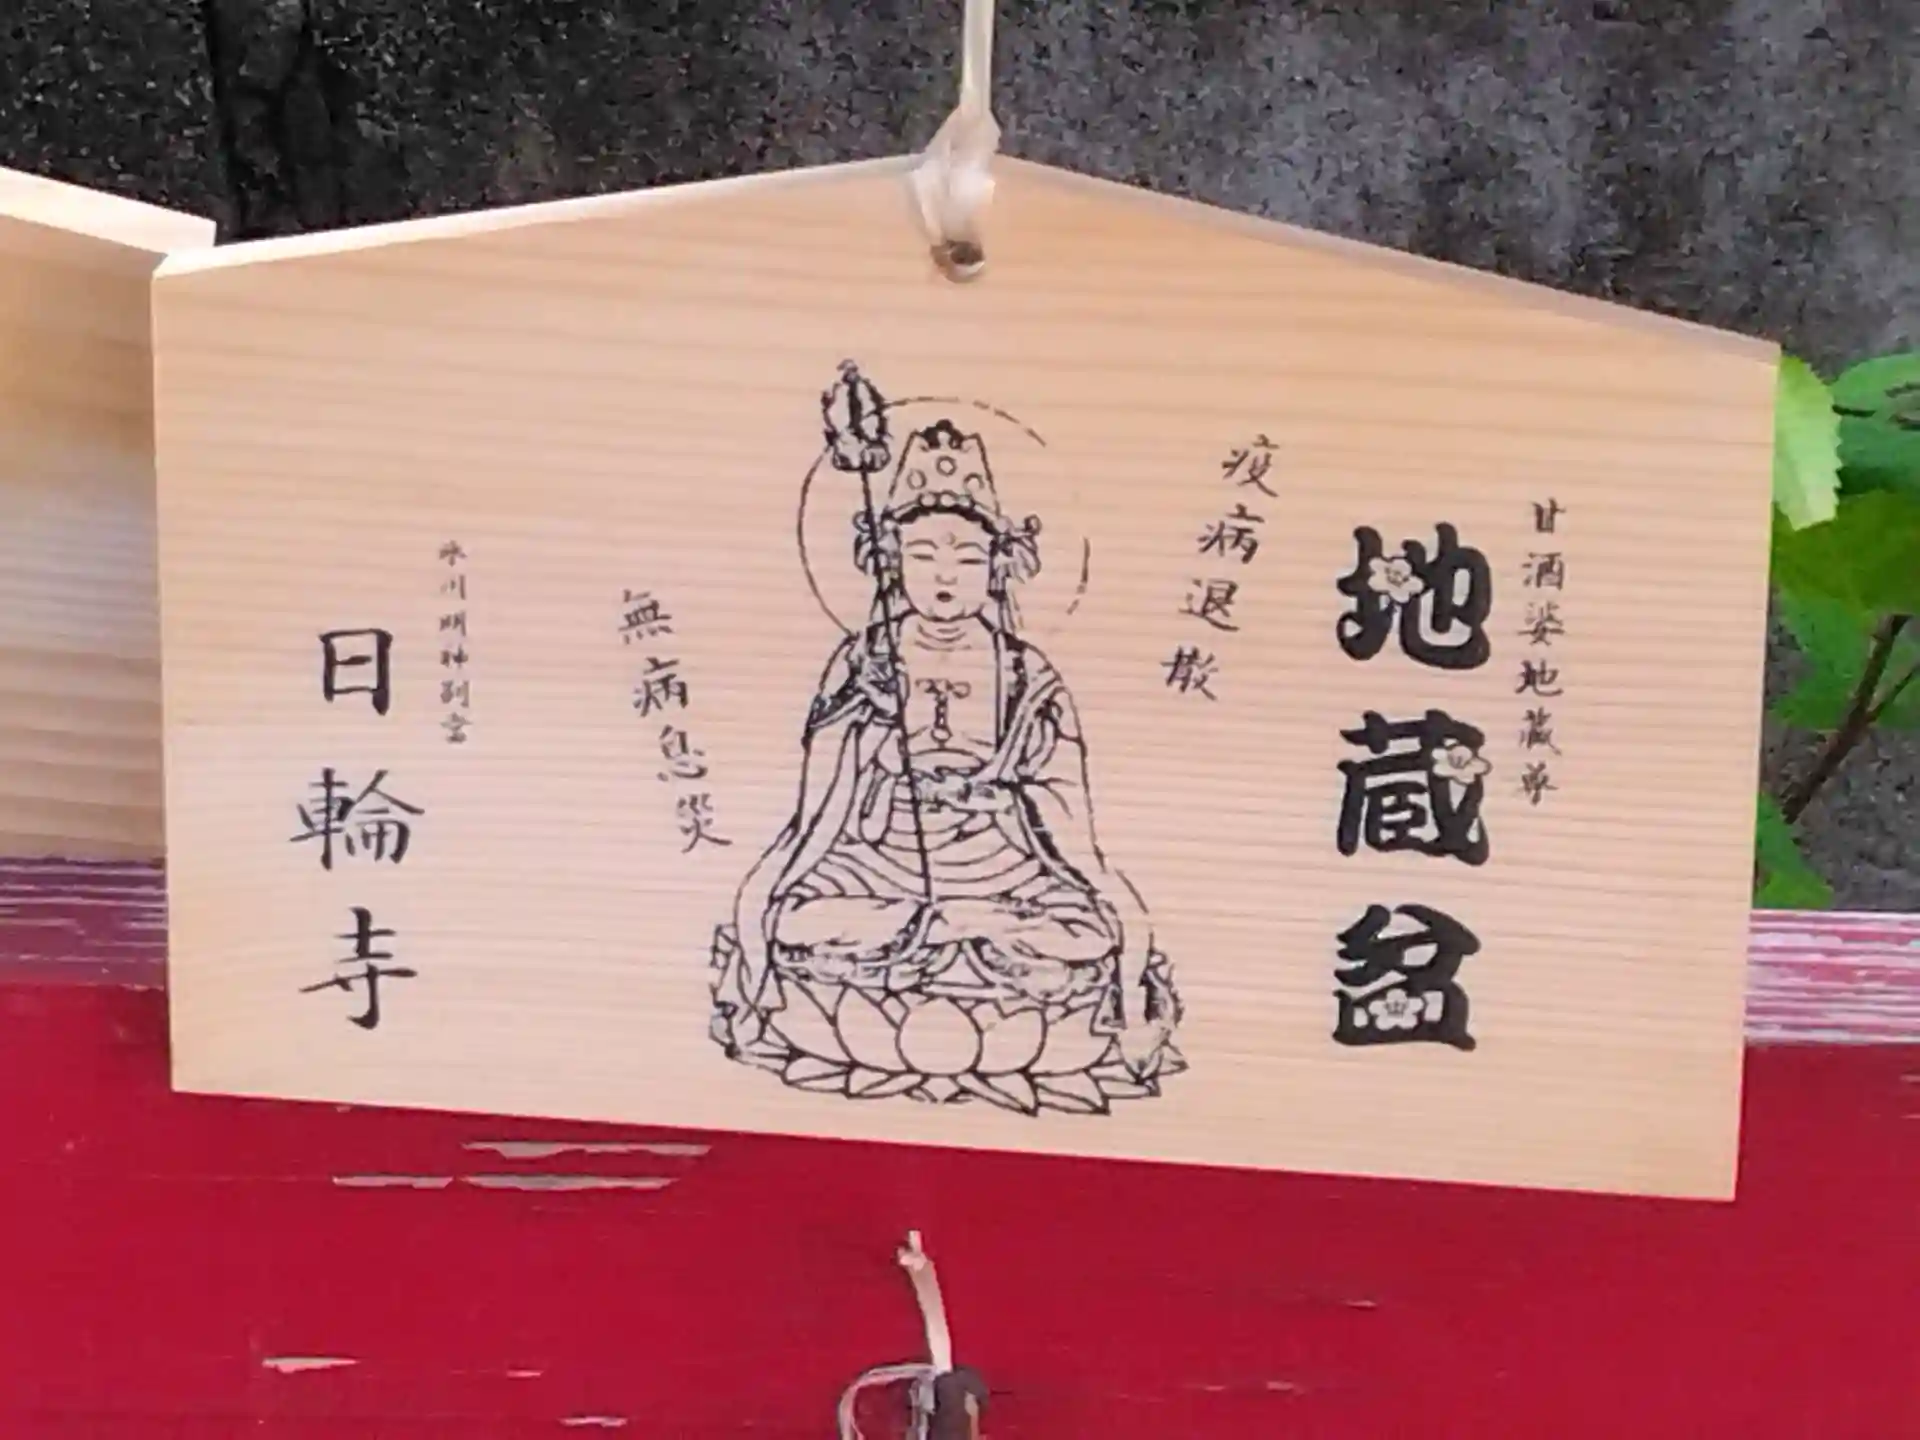 甘酒婆地蔵尊
地蔵盆
疫病退散
無病息災
氷川明神別當
日輪寺